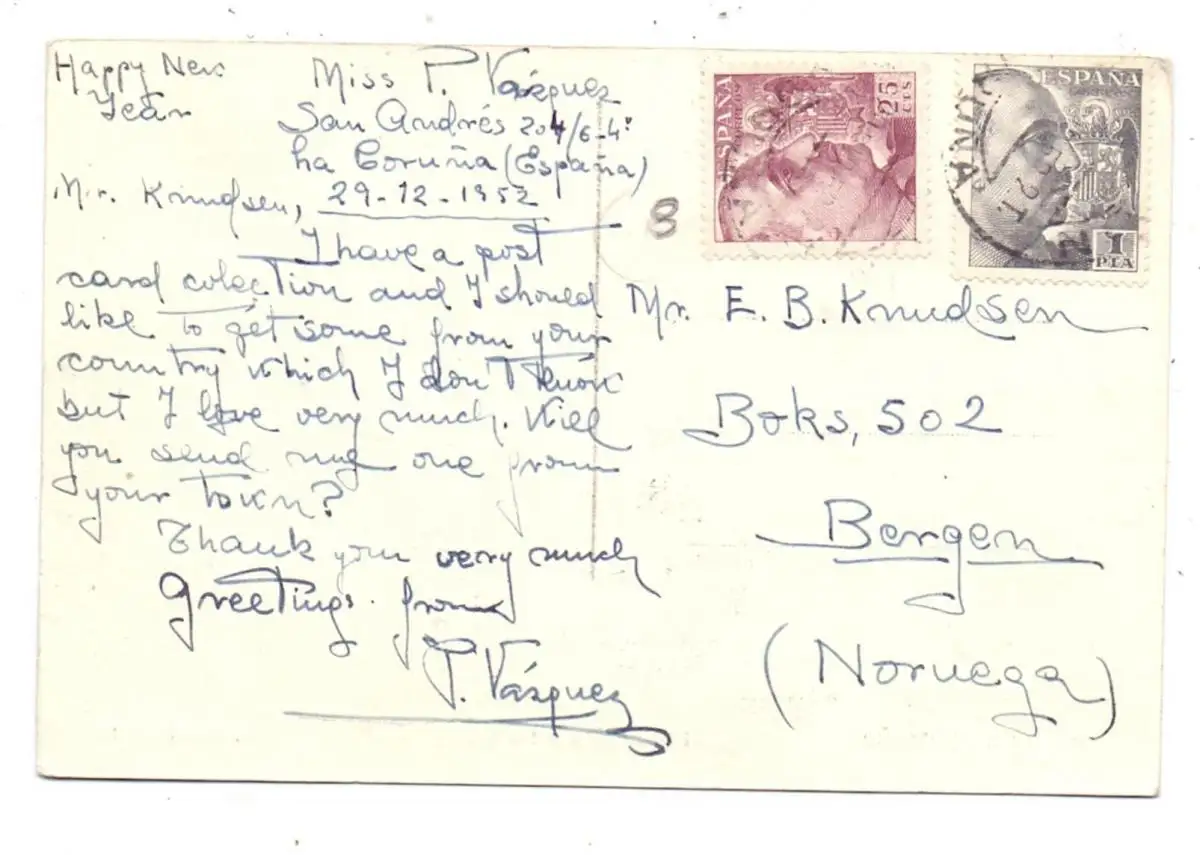 Happy New
Year
Miss P. Vázquez
San Andrés 204/6-4º
La Coruña (España)
Mr. Knudsen, 29-12-1952
I have a post
card colection and I should
like to get some from your
country which I don't know
but I love very much. Will
you send me one from
your town?
Thank you very much
greetings from
P. Vázquez
8
ESPAÑA
25
CTS
ESPAÑA
1
PTA
Mr. E. B. Knudsen
Boks, 502
Bergen
(Noruega)